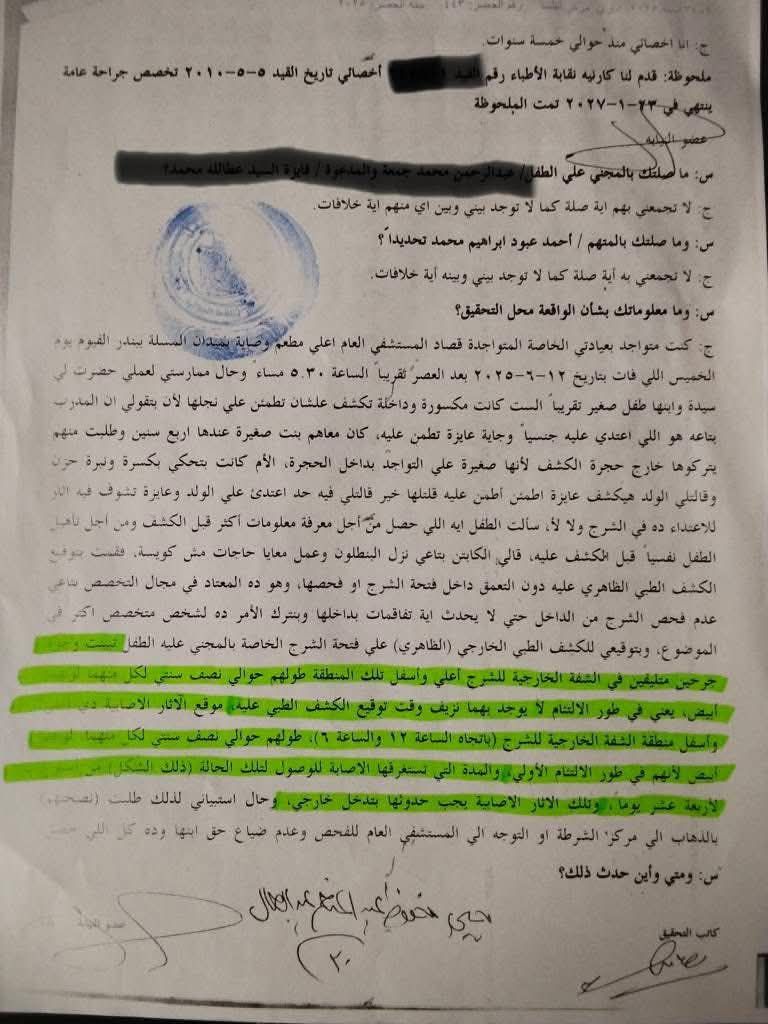 ج: انا اخصائي منذ حوالي خمسة سنوات.
ملحوظة: قدم لنا كارنيه نقابة الأطباء رقم أخصائي تاريخ القيد ٥-٥-٢٠١٠ تخصص جراحة عامة
ينتهي في ٢٣-١-٢٠٢٧ تمت الملحوظة
عضو النيابه
س: ما صلتك بالمجني علي الطفل/
ج: لا تجمعني بهم اية صلة كما لا توجد بيني وبين اي منهم اية خلافات.
س: وما صلتك بالمتهم / أحمد عبود ابراهيم محمد تحديداً؟
ج: لا تجمعني به أية صلة كما لا توجد بيني وبينه أية خلافات.
س: وما معلوماتك بشأن الواقعة محل التحقيق؟
ج: كنت متواجد بعيادتي الخاصة المتواجدة قصاد المستشفي العام اعلي مطعم وصاية بميدان المسلة ببندر الفيوم يوم
الخميس اللي فات بتاريخ ١٢-٦-٢٠٢٥ بعد العصر تقريباً الساعة ٥.٣٠ مساء وحال ممارستي لعملي حضرت لي
سيدة وابنها طفل صغير تقريباً الست كانت مكسورة وداخلة تكشف علشان تطمئن علي نجلها لأن بتقولي ان المدرب
بتاعه هو اللي اعتدي عليه جنسياً وجاية عايزة تطمن عليه، كان معاهم بنت صغيرة عندها اربع سنين وطلبت منهم
يتركوها خارج حجرة الكشف لأنها صغيرة علي التواجد بداخل الحجرة، الأم كانت بتحكي بكسرة ونبرة حزن
وقالتلي الولد هيكشف عايزة اطمئن أطمن عليه قلتلها خير قالتلي فيه حد اعتدي علي الولد وعايزة تشوف فيه اثار
للاعتداء ده في الشرج ولا لأ، سألت الطفل ايه اللي حصل من أجل معرفة معلومات أكثر قبل الكشف ومن أجل تأهيل
الطفل نفسياً قبل الكشف عليه، قالي الكابتن بتاعي نزل البنطلون وعمل معايا حاجات مش كويسة، فقمت بتوقيع
الكشف الطبي الظاهري عليه دون التعمق داخل فتحة الشرج او فحصها، وهو ده المعتاد في مجال التخصص بتاعي
عدم فحص الشرج من الداخل حتي لا يحدث اية تفاقمات بداخلها وبنترك الأمر ده لشخص متخصص اكثر في
الموضوع، وبتوقيعي للكشف الطبي الخارجي (الظاهري) علي فتحة الشرج الخاصة بالمجني عليه الطفل تبينت وجود
جرحين متليفين في الشفة الخارجية للشرج أعلي وأسفل تلك المنطقة طولهم حوالي نصف سنتي لكل منهما
أبيض، يعني في طور الالتئام لا يوجد بهما نزيف وقت توقيع الكشف الطبي عليه، موقع الاثار الاصابية
وأسفل منطقة الشفة الخارجية للشرج (باتجاه الساعة ١٢ والساعة ٦)، طولهم حوالي نصف سنتي لكل منهما
أبيض لأنهم في طور الالتئام الأولي، والمدة التي تستغرقها الاصابة للوصول لتلك الحالة (ذلك الشكل) من
لأربعة عشر يوماً، وتلك الاثار الاصابية يجب حدوثها بتدخل خارجي، وحال استبياني لذلك طلبت (نصحتهم)
بالذهاب الي مركز الشرطة او التوجه الي المستشفي العام للفحص وعدم ضياع حق ابنها وده كل اللي حصل
س: ومتي وأين حدث ذلك؟
كاتب التحقيق
(٣٠)